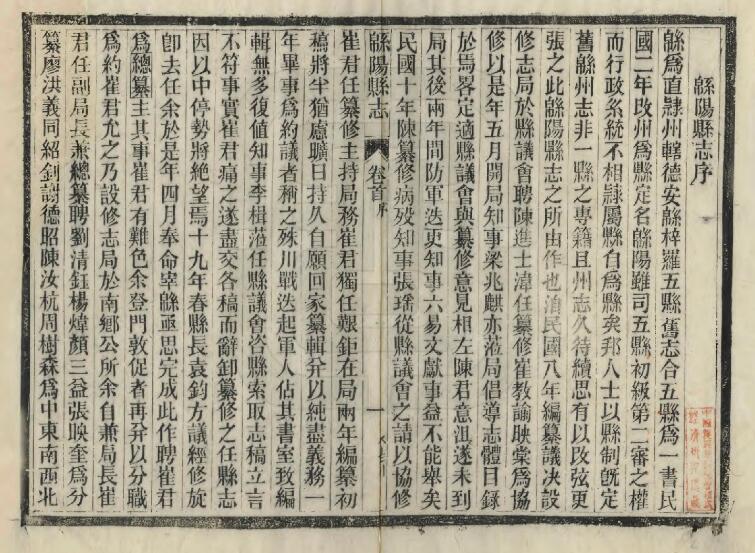 緜陽縣志序
緜爲直隷州轄德安緜梓羅五縣舊志合五縣爲一書民
國二年改州爲縣定名緜陽雖司五縣初級第二審之權
而行政系統不相隷屬縣自爲縣矣邦人士以縣制旣定
舊緜州志非一縣之專籍且州志久待續思有以改弦更
張之此緜陽縣志之所由作也洎民國八年編纂議決設
修志局於縣議會聘陳進士湋任纂修崔敎諭映棠爲協
修以是年五月開局知事梁兆麒亦蒞局倡導志體目録
於焉畧定適縣議會與纂修意見相左陳君意沮遂未到
局其後兩年間防軍迭更知事六易文獻事益不能舉矣
民國十年陳纂修病歿知事張璠從縣議會之請以協修
緜陽縣志
卷首
序
一
崔君任纂修主持局務崔君獨任艱鉅在局兩年編纂初
稿將半猶慮曠日持久自願回家纂輯幷以純盡義務一
年畢事爲約議者稱之殊川戰迭起軍人佔其書室致編
輯無多復值知事李楫蒞任縣議會咨縣索取志稿立言
不符事實崔君痛之遂盡交各稿而辭卸纂修之任縣志
因以中停勢將絶望焉十九年春縣長袁鈞方議經修旋
卽去任余於是年四月奉命宰緜亟思完成此作聘崔君
爲總纂主其事崔君有難色余登門敦促者再幷以分職
爲約崔君允之乃設修志局於南鄉公所余自兼局長崔
君任副局長兼總纂聘劉清鈺楊煒顏三益張映奎爲分
纂廖洪義同紹釗謝德昭陳汝杭周樹森爲中東南西北